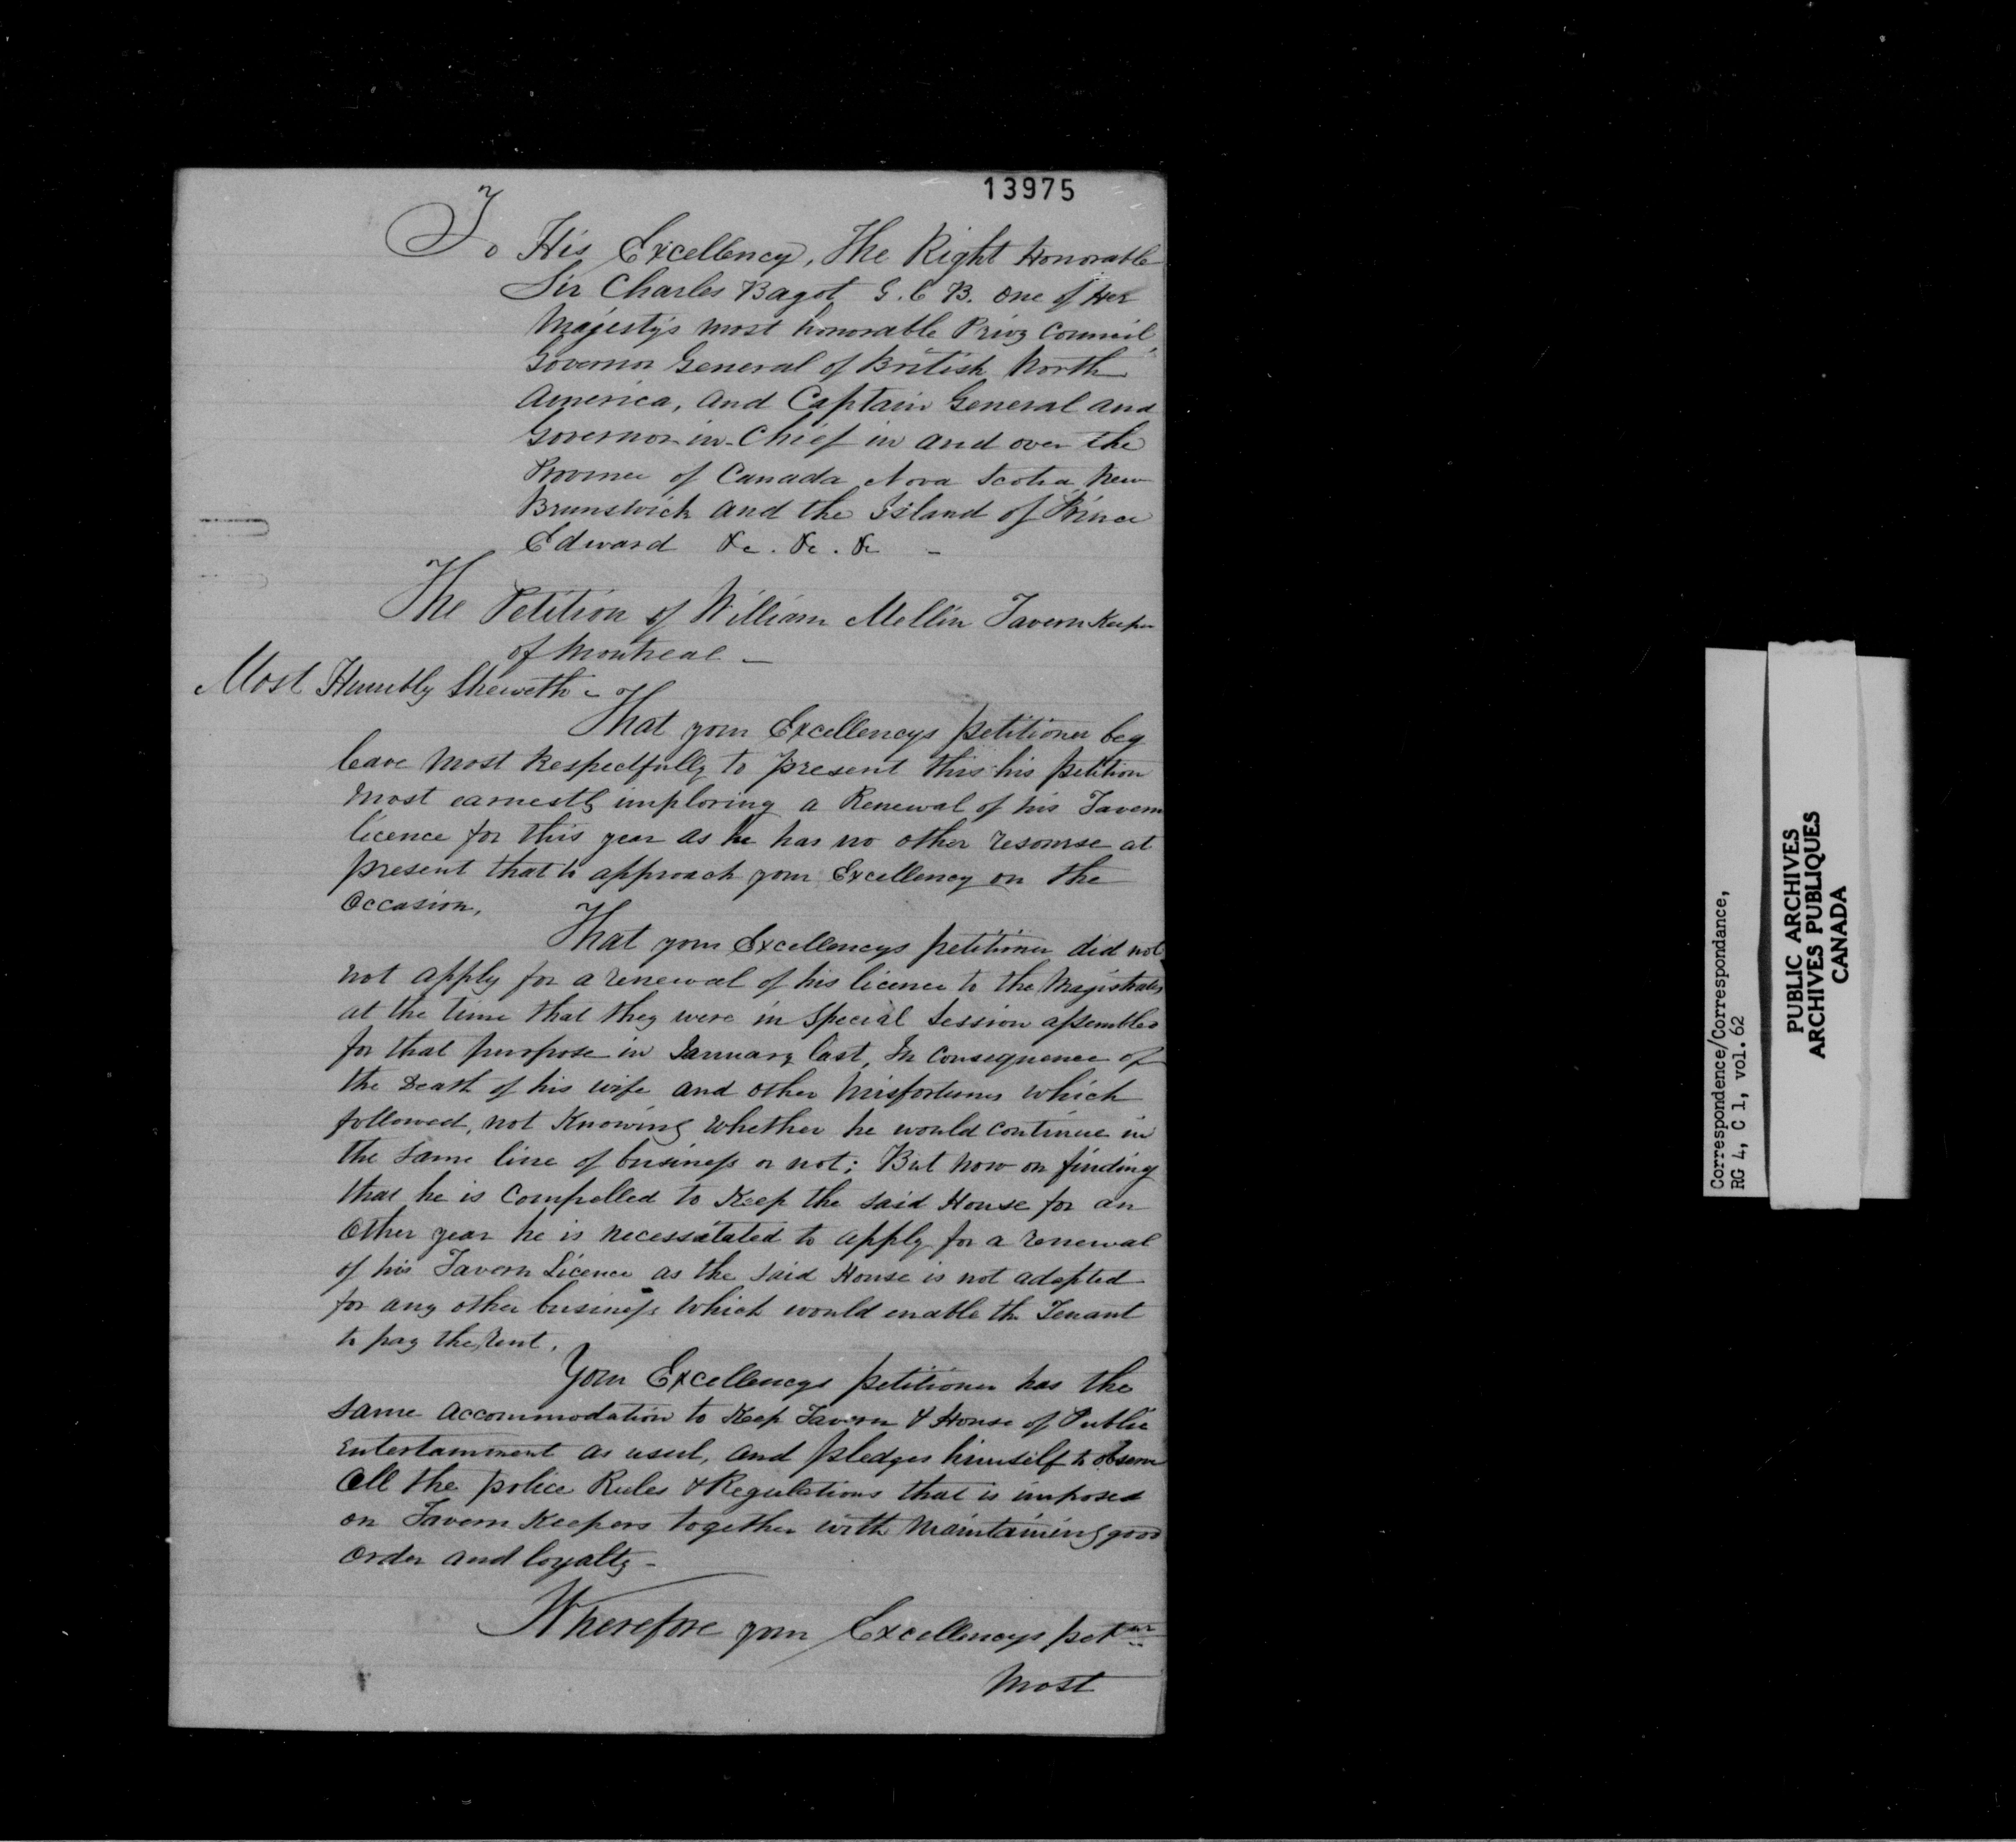 13975
To His Excellency, The Right Honorable
Sir Charles Bagot G.C.B. one of Her
Majesty's most honorable Privy Council,
Governor General of British North
America, and Captain General and
Governor-in-Chief in and over the
Province of Canada Nova Scotia New
Brunswick and the Island of Prince
Edward &c. &c. &c -
The Petition of William Mellin Tavern Keeper
of Montreal -
Most Humbly Sheweth -
That your Excellencys petitioner beg
leave most Respectfully to present this his petition
most earnestly imploring a Renewal of his Tavern
licence for this year as he has no other resourse at
present that to approach your Excellency on the
Occasion,
That your Excellencys petitioner did not
not apply for a renewal of his licence to the Magistrates
at the time that they were in Special Session assembled
for that purpose in January last, In Consequence of
the Death of his wife and other misfortunes which
followed, not Knowing whether he would continue in
the same line of business or not; But now on finding
that he is Compelled to Keep the said House for an
other year he is necessitated to apply for a renewal
of his Tavern Licence as the said House is not adapted
for any other business which would enable the Tenant
to pay the Rent.
Your Excellencys petitioner has the
same accommodation to Keep Tavern & House of Public
Entertainment as usul, and pledges himself to observe
all the police Rules & Regulations that is imposed
on Tavern Keepers together with maintaining good
order and loyalty -
Wherefore your Excellencys petner
most
Correspondence/Correspondance,
RG 4, C 1, vol. 62
PUBLIC ARCHIVES
ARCHIVES PUBLIQUES
CANADA